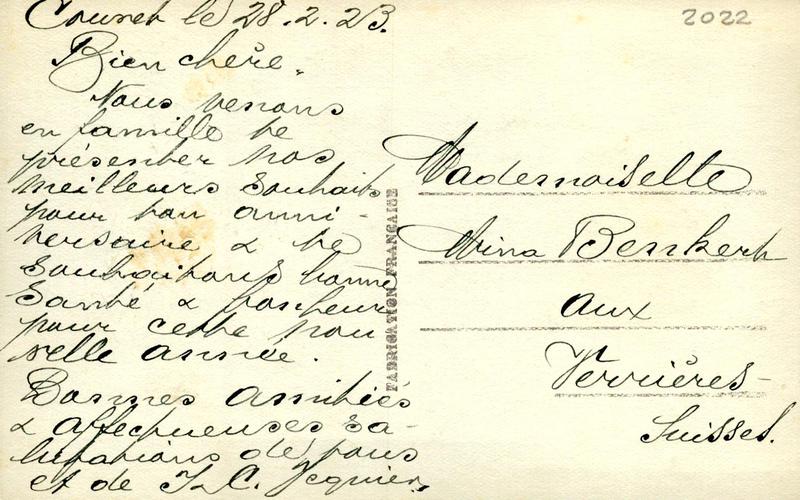 Couvet le 28.2.23.
Bien chère.
Nous venons
en famille te
présenter nos
meilleurs souhaits
pour ton anni-
versaire & te
souhaitons bonne
santé & bonheur
pour cette nou
velle année.
Bonnes amitiés
& affectueuses sa-
lutations de tous
et de J. C. Jequier.
FABRICATION FRANÇAISE
2022
Mademoiselle
Nina Benkert
aux
Verrières-
Suisses.